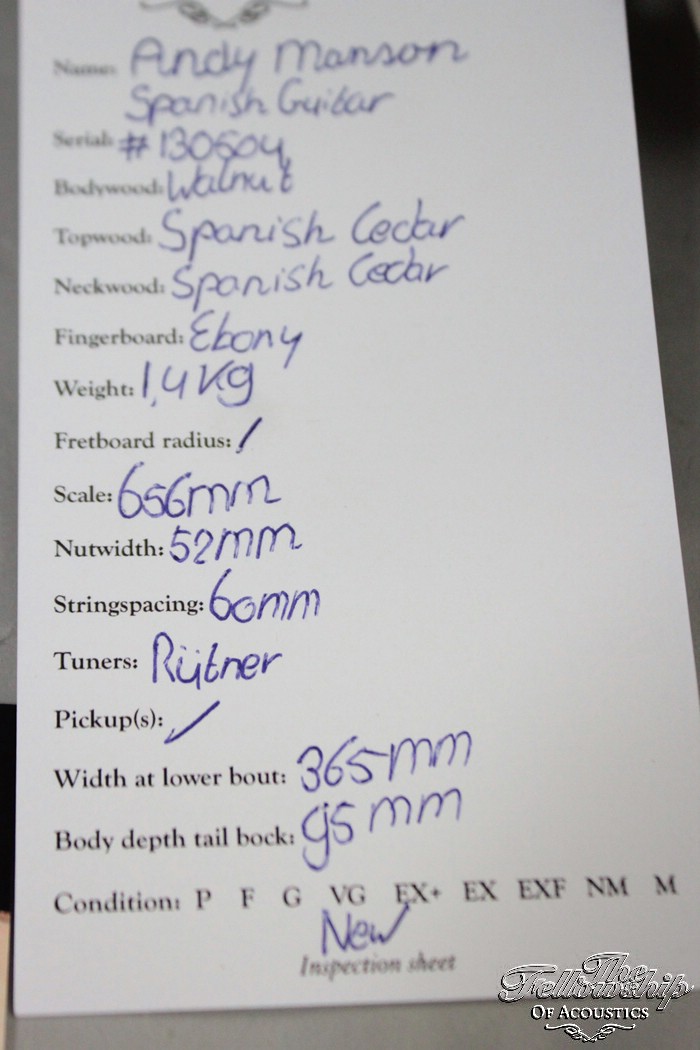 Name: Andy Manson
Spanish Guitar
Serial: #130504
Bodywood: Walnut
Topwood: Spanish Cedar
Neckwood: Spanish Cedar
Fingerboard: Ebony
Weight: 1,4 KG
Fretboard radius: /
Scale: 656mm
Nutwidth: 52mm
Stringspacing: 60mm
Tuners: Rütner
Pickup(s): /
Width at lower bout: 365mm
Body depth tail bock: 95mm
Condition: P F G VG EX+ EX EXF NM M
New
Inspection sheet
The
Fellowship
OF ACOUSTICS